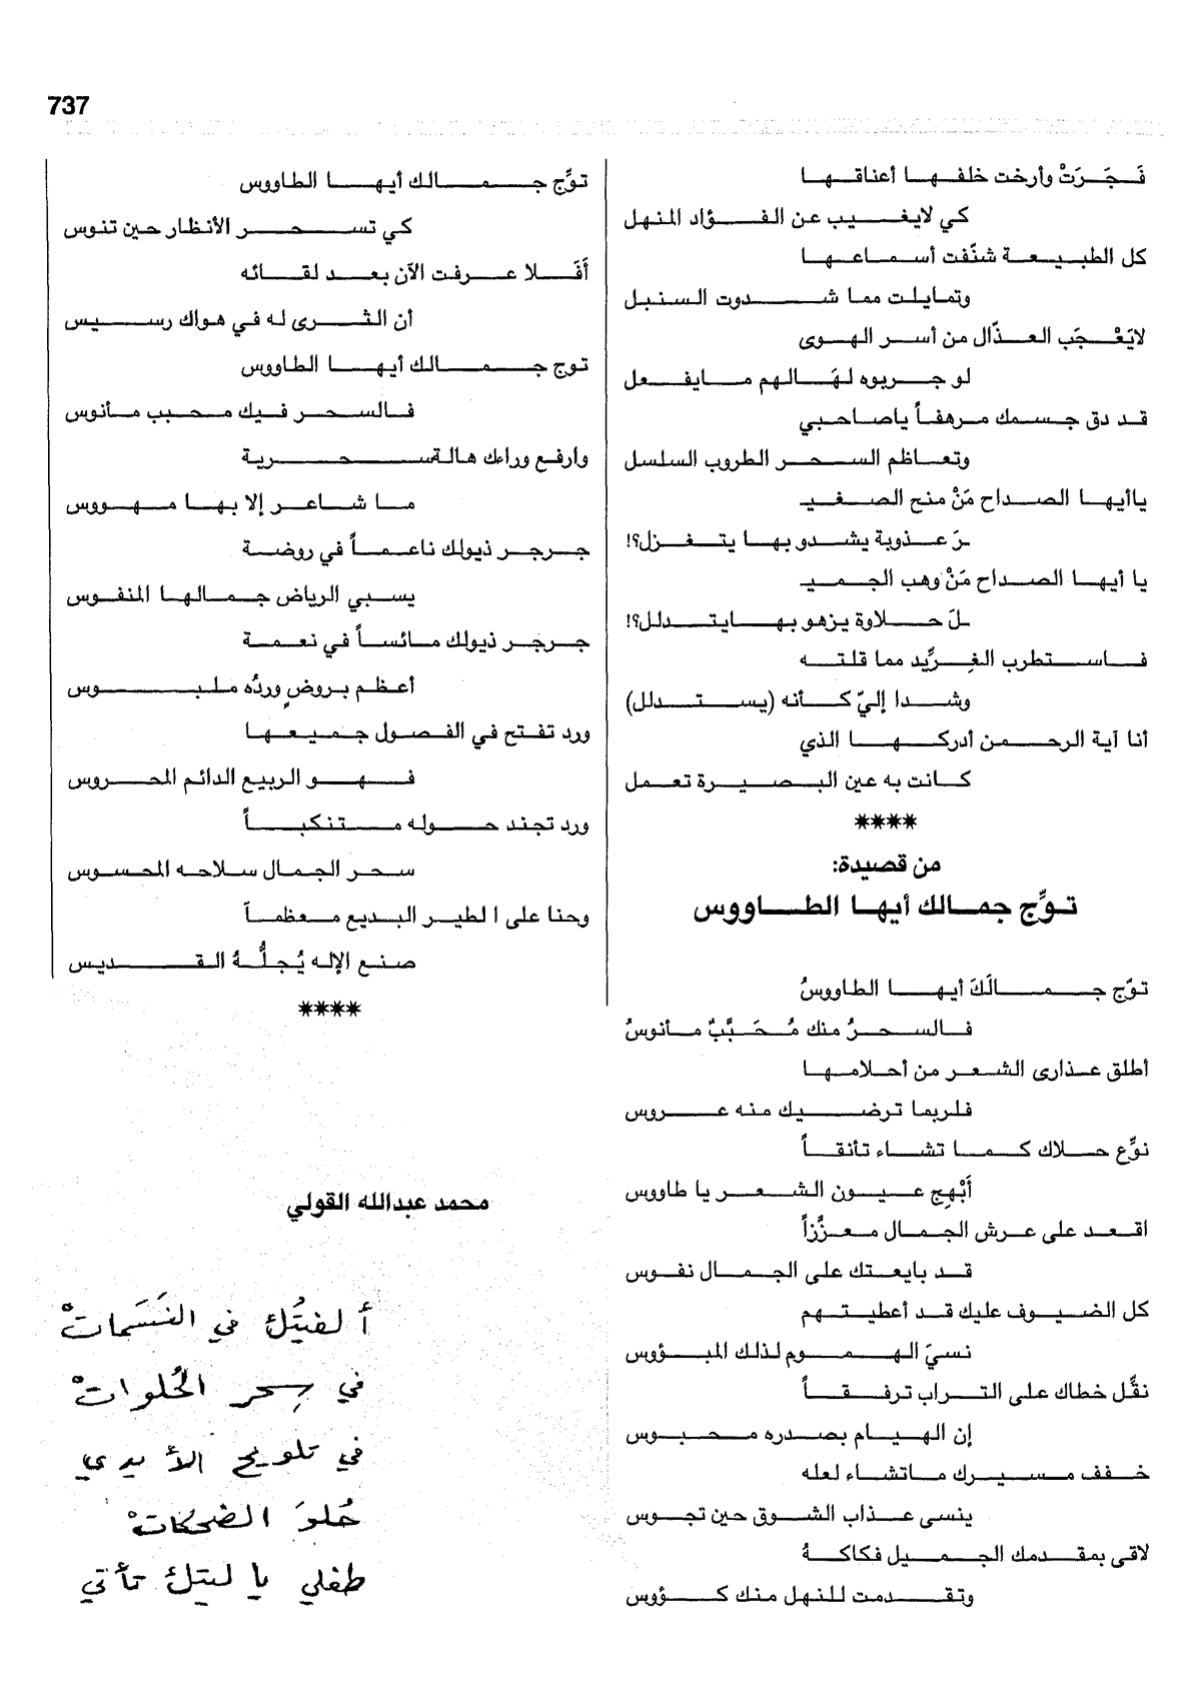 737
فَجَرَتْ وأرخت خلفها أعناقها
كي لايغيب عن الفؤاد المنهل
كل الطبيعة شنّفت أسماعها
وتمايلت مما شدوت السنبل
لايَعْجَب العذّال من أسر الهوى
لو جربوه لهَالهم مايفعل
قد دق جسمك مرهفاً ياصاحبي
وتعاظم السحر الطروب السلسل
ياأيها الصداح مَنْ منح الصفيـ
ـرَ عذوبة يشدو بها يتغزل؟!
يا أيها الصداح مَنْ وهب الجميـ
ـلَ حلاوة يزهو بها يتدلل؟!
فاستطرب الغِرِّيد مما قلته
وشدا إليّ كأنه (يستدلل)
أنا آية الرحمن أدركها الذي
كانت به عين البصيرة تعمل
****
من قصيدة:
توِّج جمالك أيها الطاووس
توّج جمالَكَ أيها الطاووسُ
فالسحرُ منك مُحَبَّبٌ مأنوسُ
أطلق عذارى الشعر من أحلامها
فلربما ترضيك منه عروس
نوِّع حلاك كما تشاء تأنقاً
أَبْهِج عيون الشعر يا طاووس
اقعد على عرش الجمال معزُّزاً
قد بايعتك على الجمال نفوس
كل الضيوف عليك قد أعطيتهم
نسيَ الهموم لذلك المبؤوس
نقِّل خطاك على التراب ترفقاً
إن الهيام بصدره محبوس
خفف مسيرك ماتشاء لعله
ينسى عذاب الشوق حين تجوس
لاقى بمقدمك الجميل فكاكهُ
وتقدمت للنهل منك كؤوس
توِّج جمالك أيها الطاووس
كي تسحر الأنظار حين تنوس
أَفَلا عرفت الآن بعد لقائه
أن الثرى له في هواك رسيس
توج جمالك أيها الطاووس
فالسحر فيك محبب مأنوس
وارفع وراءك هالة سحرية
ما شاعر إلا بها مهووس
جرجر ذيولك ناعماً في روضة
يسبي الرياض جمالها المنفوس
جرجر ذيولك مائساً في نعمة
أعظم بروضٍ وردُه ملبوس
ورد تفتح في الفصول جميعها
فهو الربيع الدائم المحروس
ورد تجند حوله متنكباً
سحر الجمال سلاحه المحسوس
وحنا على الطير البديع معظماً
صنع الإله يُجلُّهُ القديس
****
محمد عبدالله القولي
ألفيتُك في النَسَماتْ
في سِحر الخُلواتْ
في تلويح الأيدي
حُلوَ الضحكاتْ
طفلي يا ليتك تأتي